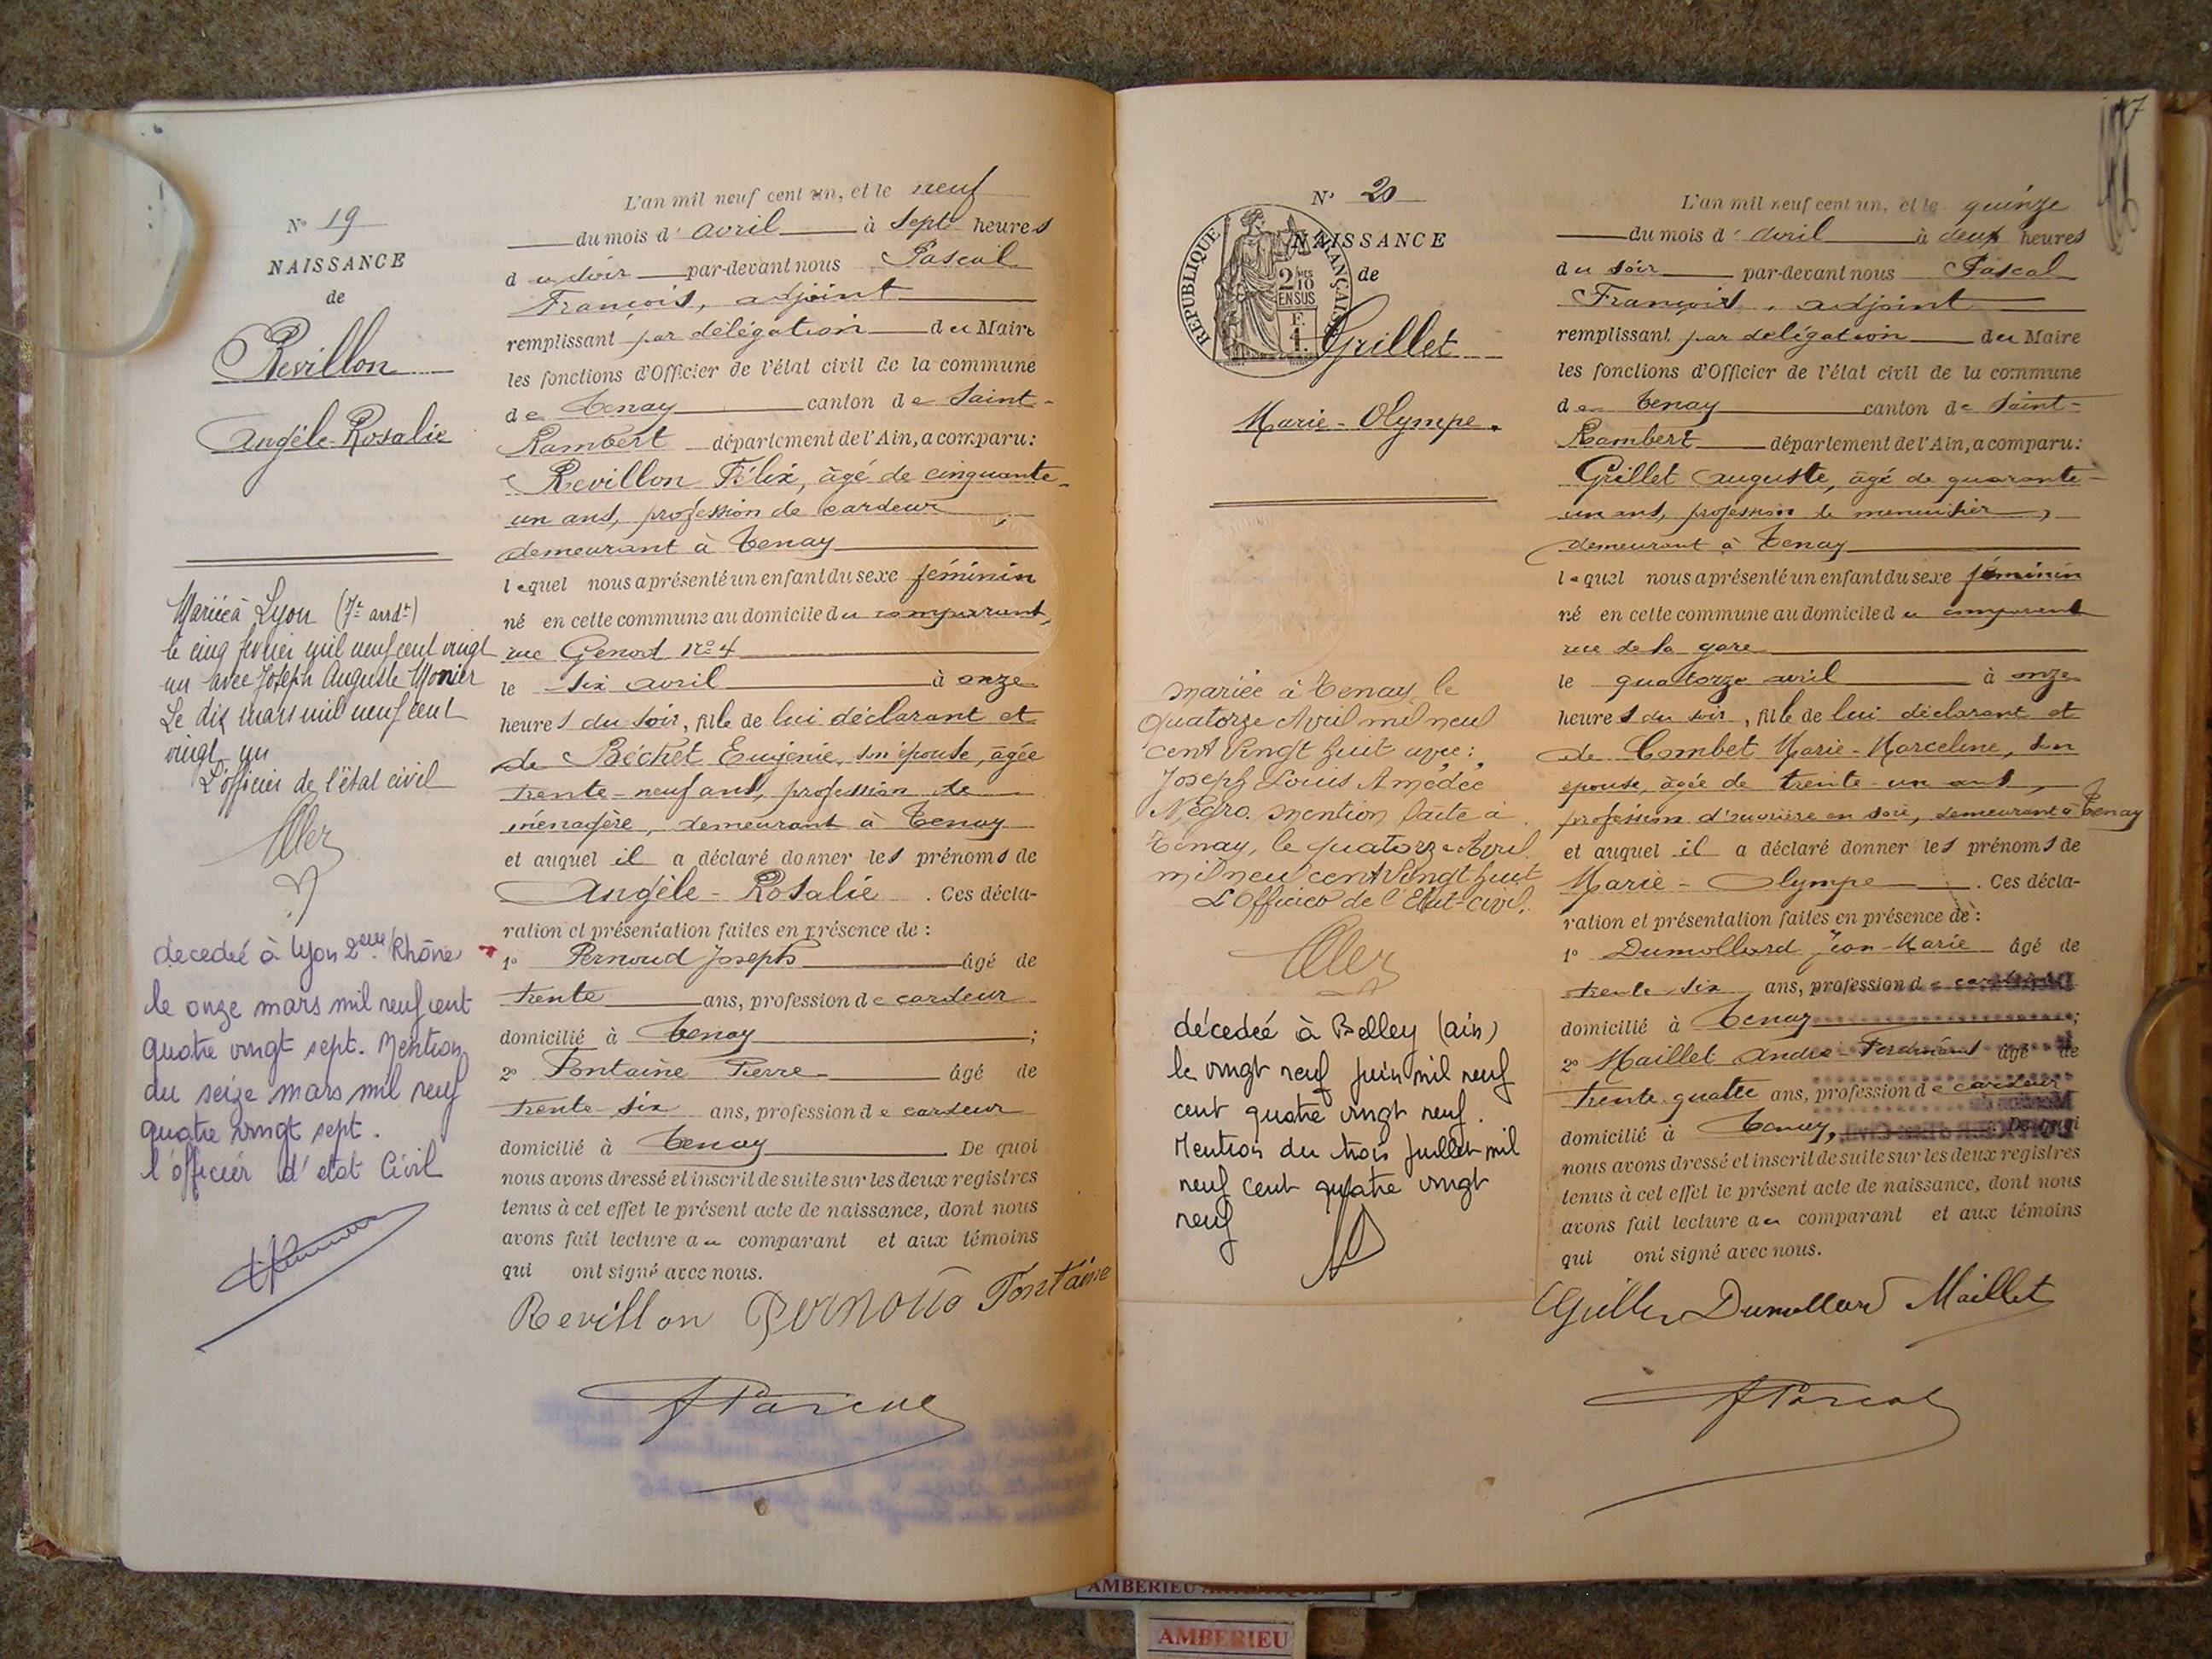 N° 19
NAISSANCE
de
Revillon
Angèle-Rosalie
Mariée à Lyon (7e arrdt)
le cinq février mil neuf cent vingt
un avec Joseph Auguste Monier
Le dix mars mil neuf cent
vingt un
L'officier de l'état civil
décedeé à Lyon 2eme Rhône
le onze mars mil neuf cent
quatre vingt sept. Mention
du seize mars mil neuf
quatre vingt sept.
l'officier d'etat Civil
L'an mil neuf cent un, et le neuf
du mois d'avril à sept heures
du soir par-devant nous Pascal
François, adjoint
remplissant par délégation du Maire
les fonctions d'Officier de l'état civil de la commune
de Tenay canton de Saint-
Rambert département de l'Ain, a comparu:
Revillon Félix, âgé de cinquante-
un ans, profession de cardeur,
demeurant à Tenay
lequel nous a présenté un enfant du sexe féminin
né en cette commune au domicile du comparant,
rue Genod N° 4
le six avril à onze
heures du soir, fille de lui déclarant et
de Béchet Eugénie, son épouse, âgée
trente-neuf ans, profession de
ménagère, demeurant à Tenay
et auquel il a déclaré donner les prénoms de
Angèle-Rosalie. Ces décla-
ration et présentation faites en présence de:
1° Pernoud Joseph âgé de
trente ans, profession de cardeur
domicilié à Tenay;
2° Fontaine Pierre âgé de
trente-six ans, profession de cardeur
domicilié à Tenay De quoi
nous avons dressé et inscrit de suite sur les deux registres
tenus à cet effet le présent acte de naissance, dont nous
avons fait lecture au comparant et aux témoins
qui ont signé avec nous.
Revillon Pernoud Fontaine
FPascal
N° 20
RÉPUBLIQUE FRANÇAISE
NAISSANCE
de
Grillet
Marie-Olympe.
mariée à Tenay, le
quatorze Avril mil neuf
cent vingt huit avec:
Joseph Louis Amédée
Négro. Mention faite à
Tenay, le quatorze Avril
mil neuf cent vingt huit
L'Officier de l'Etat-civil.
décedeé à Belley (ain)
le vingt neuf juin mil neuf
cent quatre vingt neuf.
Mention du trois juillet mil
neuf cent quatre vingt
neuf
L'an mil neuf cent un, et le quinze
du mois d'avril à deux heures
du soir par-devant nous Pascal
François, adjoint
remplissant par délégation du Maire
les fonctions d'Officier de l'état civil de la commune
de Tenay canton de Saint-
Rambert département de l'Ain, a comparu:
Grillet Auguste, âgé de quarante-
un ans, profession de menuisier,
demeurant à Tenay
lequel nous a présenté un enfant du sexe féminin
né en cette commune au domicile du comparant
rue de la gare
le quatorze avril à onze
heures du soir, fille de lui déclarant et
de Combet Marie-Marceline, son
épouse, âgée de trente-un ans,
profession d'ouvrière en soie, demeurant à Tenay
et auquel il a déclaré donner les prénoms de
Marie-Olympe. Ces décla-
ration et présentation faites en présence de:
1° Dumollard Jean-Marie âgé de
trente six ans, profession de cardeur
domicilié à Tenay;
2° Maillet André-Ferdinand âgé de
trente-quatre ans, profession de cardeur
domicilié à Tenay, De quoi
nous avons dressé et inscrit de suite sur les deux registres
tenus à cet effet le présent acte de naissance, dont nous
avons fait lecture au comparant et aux témoins
qui ont signé avec nous.
Grillet Dumollard Maillet
FPascal
AMBERIEU